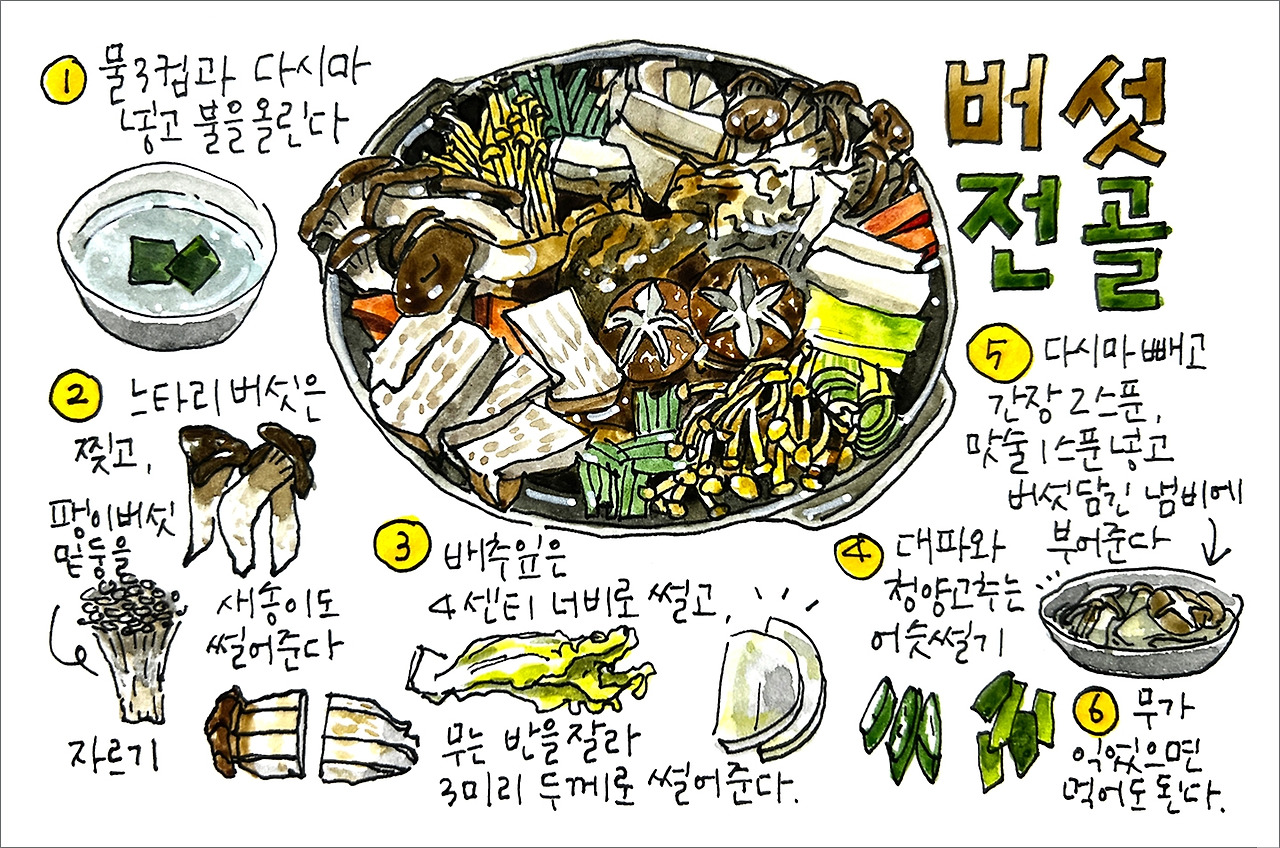 버섯
전골
1 물3컵과 다시마
넣고 불을올린다
2 느타리버섯은
찢고,
팽이버섯
밑둥을
자르기
새송이도
썰어준다
3 배추잎은
4센티 너비로 썰고,
무는 반을잘라
3미리 두께로 썰어준다.
4 대파와
청양고추는
어슷썰기
5 다시마빼고
간장2스푼,
맛술1스푼넣고
버섯담긴 냄비에
부어준다
6 무가
익었으면
먹어도된다.